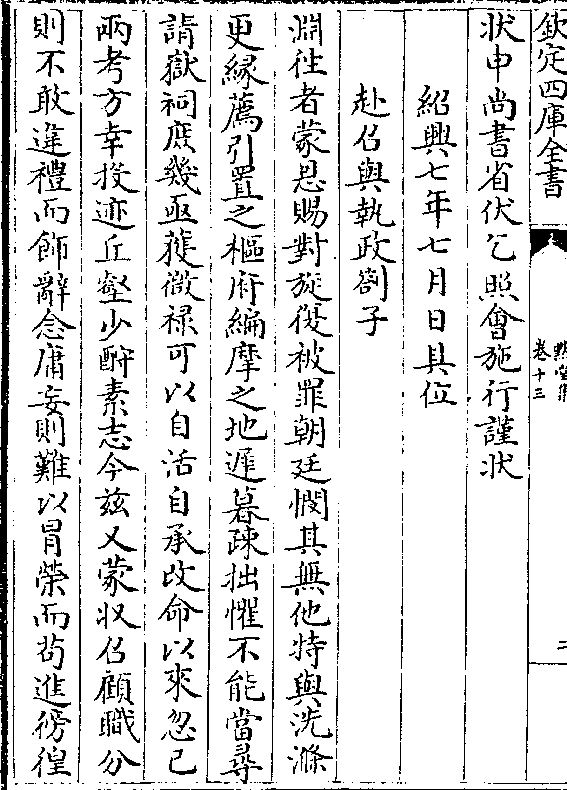 欽定四庫全書
默堂集
卷十三
二
狀申尚書省伏乞照會施行謹狀
紹興七年七月日具位
赴召與執政劄子
淵徃者蒙恩賜對旋復被罪朝廷憫其無他特與洗滌
更縁薦引置之樞府編摩之地遲暮疎拙懼不能當尋
請獄祠庶幾亟穫微禄可以自活自承改命以來忽已
兩考方幸投迹丘壑少酧素志今兹又蒙收召顧職分
則不敢違禮而飾辭念庸妄則難以冒榮而茍進徬徨